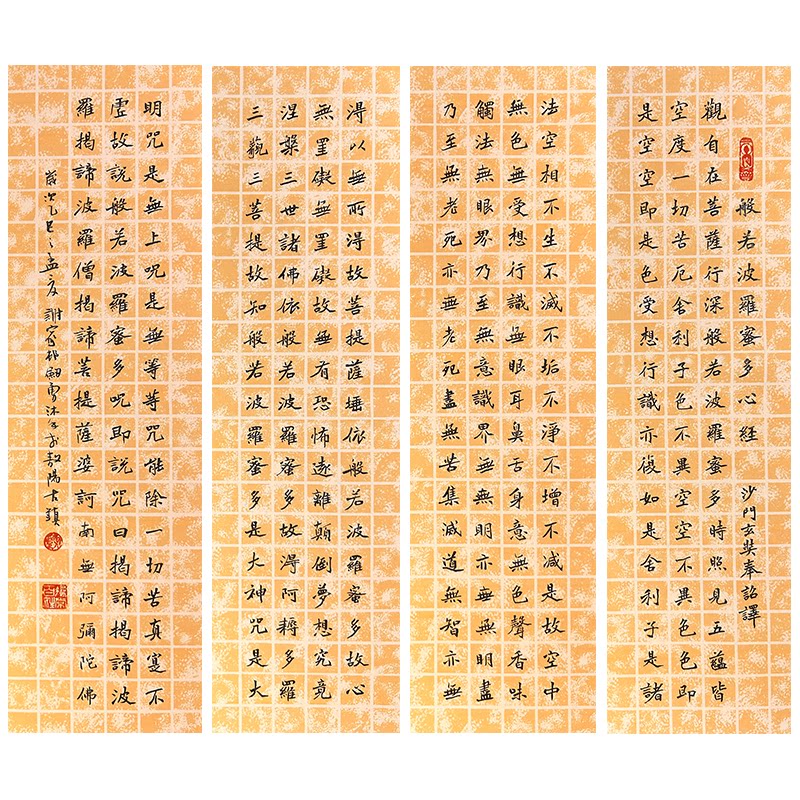 般若波羅蜜多心經 沙門玄奘奉詔譯
觀自在菩薩行深般若波羅蜜多時照見五蘊皆
空度一切苦厄舍利子色不異空空不異色色即
是空空即是色受想行識亦復如是舍利子是諸
法空相不生不滅不垢不淨不增不減是故空中
無色無受想行識無眼耳鼻舌身意無色聲香味
觸法無眼界乃至無意識界無無明亦無無明盡
乃至無老死亦無老死盡無苦集滅道無智亦無
得以無所得故菩提薩埵依般若波羅蜜多故心
無罣礙無罣礙故無有恐怖遠離顛倒夢想究竟
涅槃三世諸佛依般若波羅蜜多故得阿耨多羅
三藐三菩提故知般若波羅蜜多是大神咒是大
明咒是無上咒是無等等咒能除一切苦真寔不
虛故說般若波羅蜜多咒即說咒曰揭諦揭諦波
羅揭諦波羅僧揭諦菩提薩婆訶南無阿彌陀佛
歲次乙巳之孟夏謝家邨翩雪沐手於陽古鎮